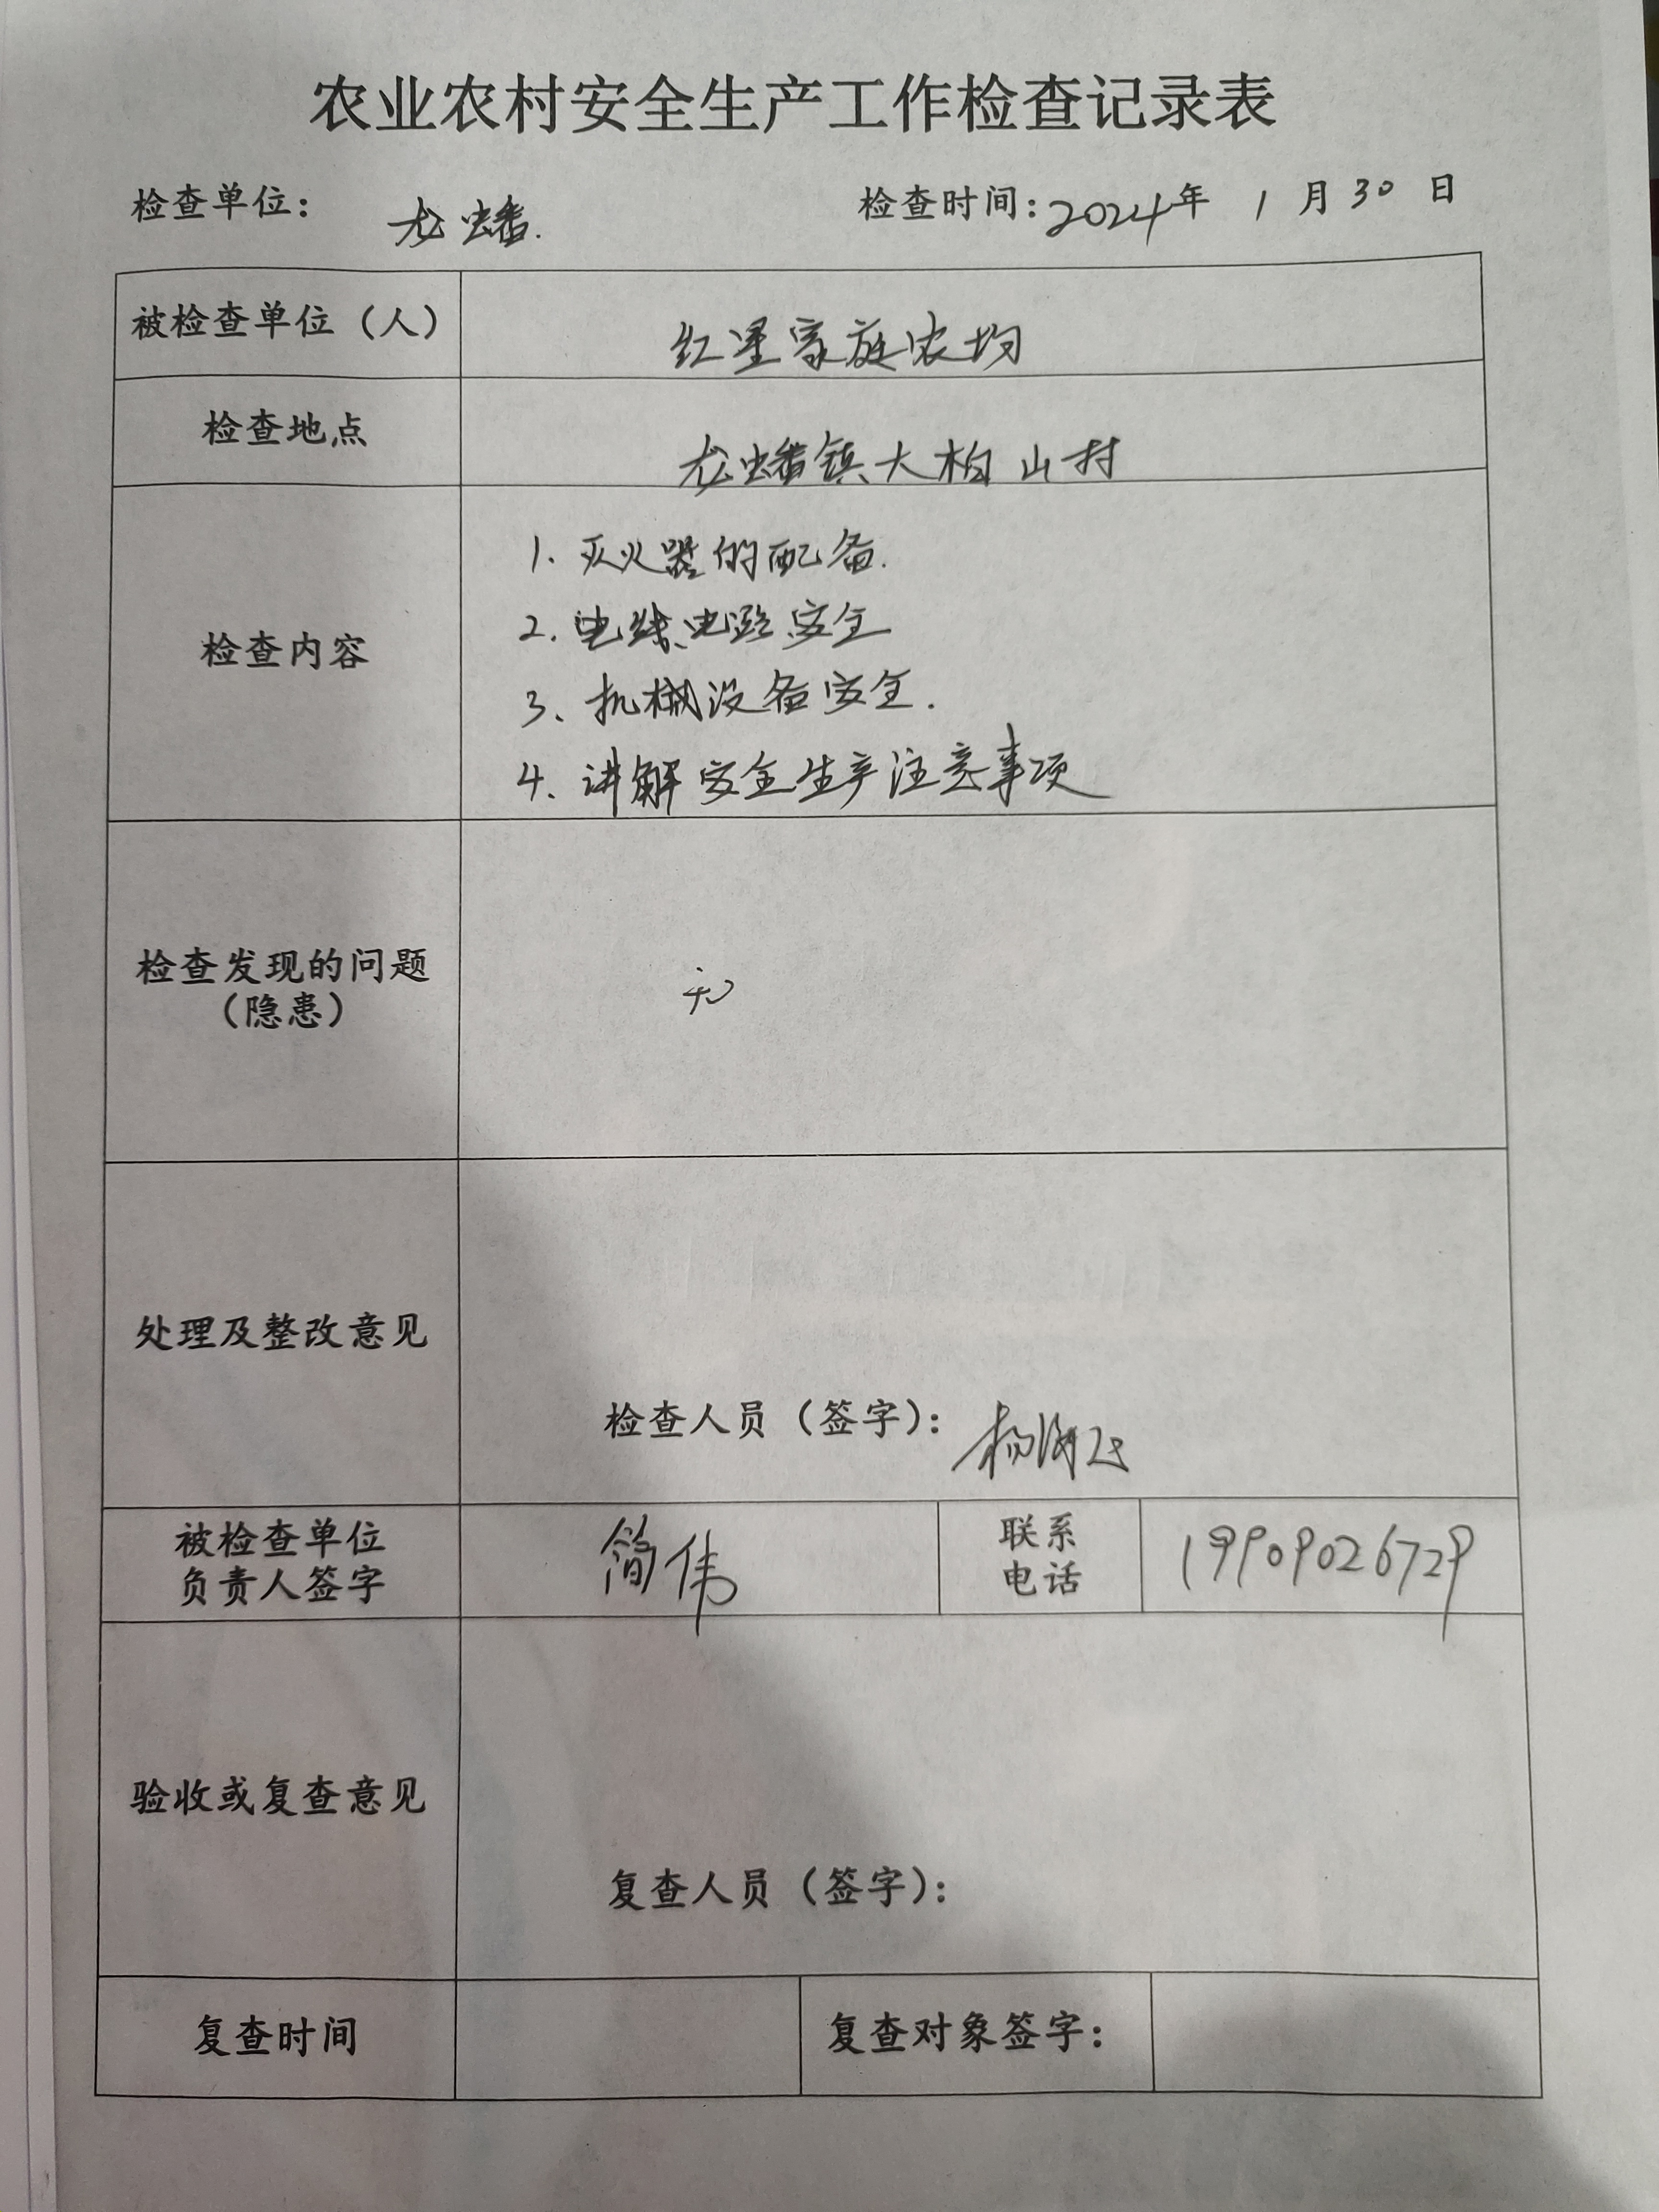 农业农村安全生产工作检查记录表
检查单位： 龙蟠. 检查时间：2024年 1 月 30 日
被检查单位（人） 红星家庭农场
检查地点 龙蟠镇大柏山村
检查内容
1. 灭火器的配备.
2. 电线、电路安全
3、机械设备安全.
4、讲解安全生产注意事项
检查发现的问题
（隐患）
无
处理及整改意见
检查人员（签字）： 杨海
被检查单位
负责人签字
简伟
联系
电话
19909026729
验收或复查意见
复查人员（签字）：
复查时间 复查对象签字：